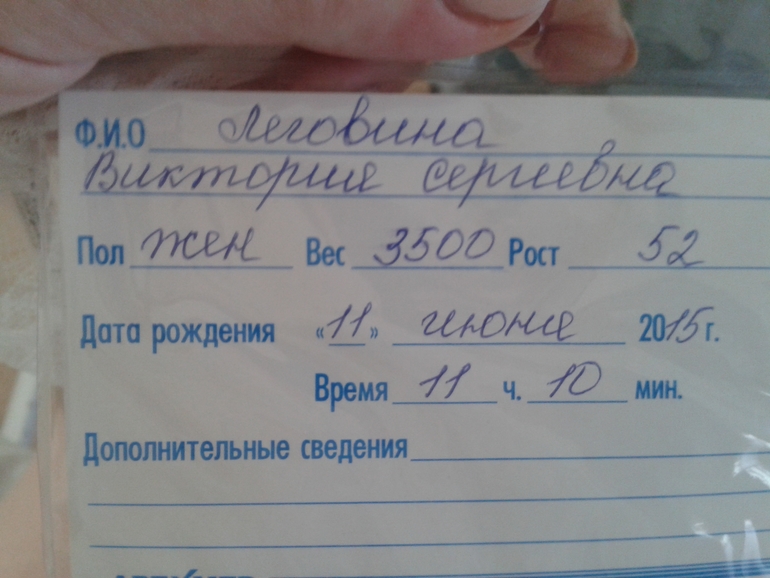 Ф.И.О Леговина
Виктория Сергеевна
Пол жен Вес 3500 Рост 52
Дата рождения «11» июня 2015 г.
Время 11 ч. 10 мин.
Дополнительные сведения